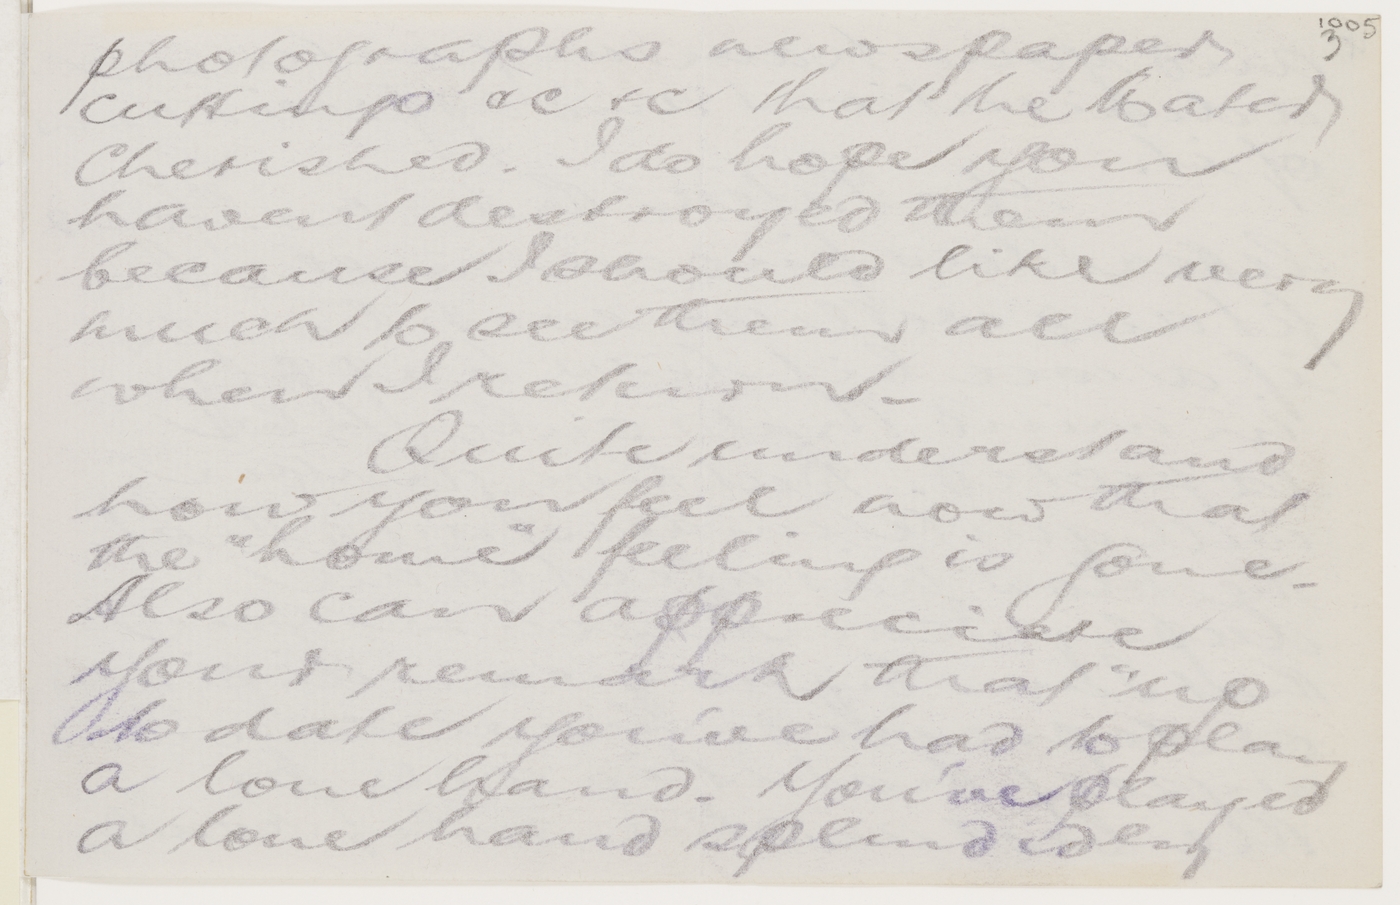 1005
3
photographs newspaper
cuttings &c &c that the Pater
cherished. I do hope you
havent destroyed them
because I should like very
much to see them all
when I return -
Quite understand
how you feel now that
the "home" feeling is gone -
Also can appreciate
your remark that "up
to date you've had to play
a lone hand. You've played
a lone hand splendidly